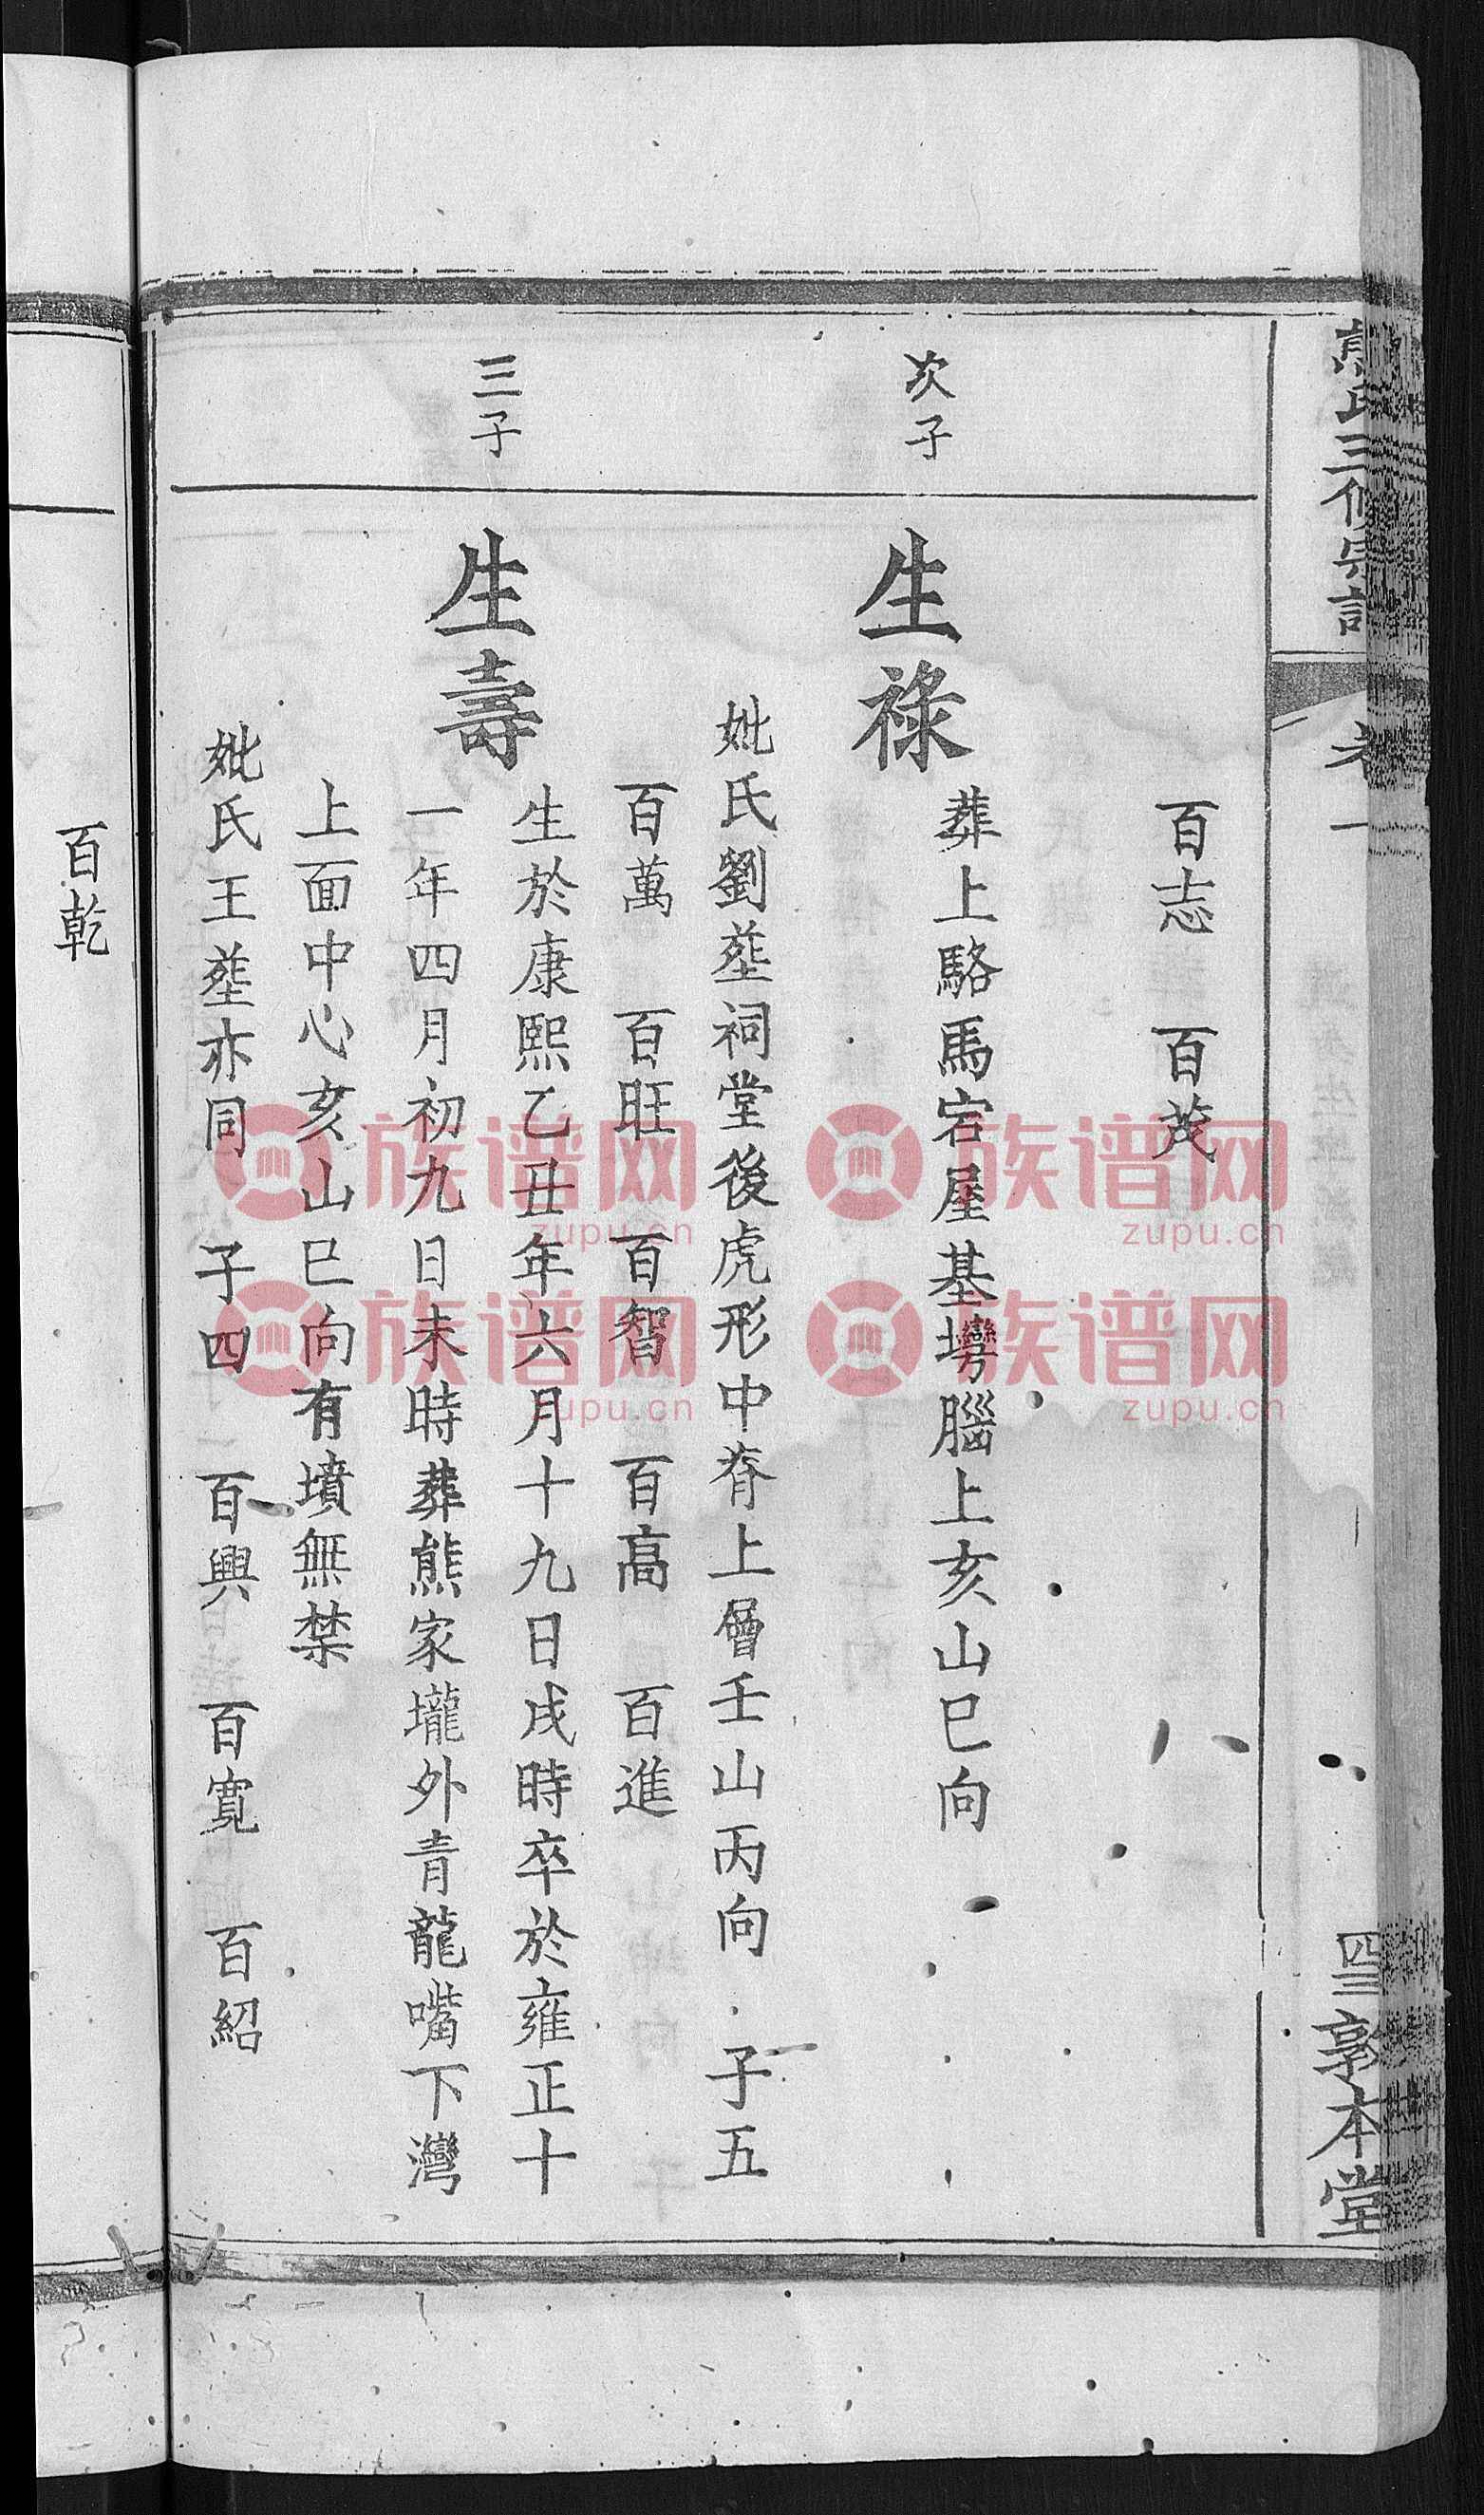 熊氏三修宗譜
卷一
四三 敦本堂
百志 百茂
次子
生祿
葬上駱馬宕屋基塆腦上亥山巳向
妣氏劉塟祠堂後虎形中脊上層壬山丙向 子五
百萬 百旺 百智 百高 百進
三子
生壽
生於康熙乙丑年六月十九日戌時卒於雍正十
一年四月初九日未時葬熊家壠外青龍嘴下灣
上面中心亥山巳向有墳無禁
妣氏王塟亦同 子四 百興 百寬 百紹
百乾
族谱网
zupu.cn
族谱网
zupu.cn
族谱网
zupu.cn
族谱网
zupu.cn